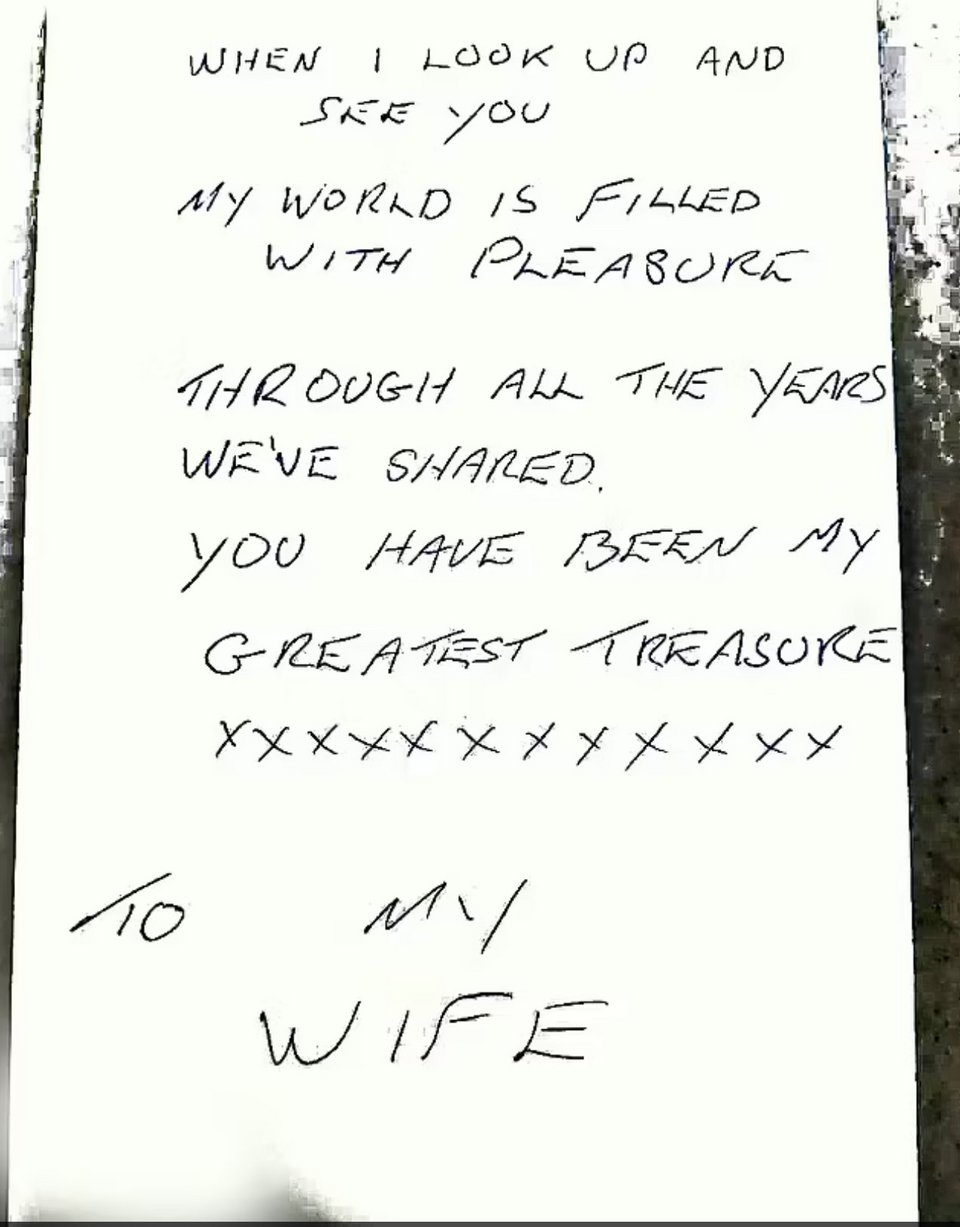 WHEN I LOOK UP AND
SEE YOU
MY WORLD IS FILLED
WITH PLEASURE
THROUGH ALL THE YEARS
WE'VE SHARED.
YOU HAVE BEEN MY
GREATEST TREASURE
XXXXXXXXXXXX
TO MY
WIFE